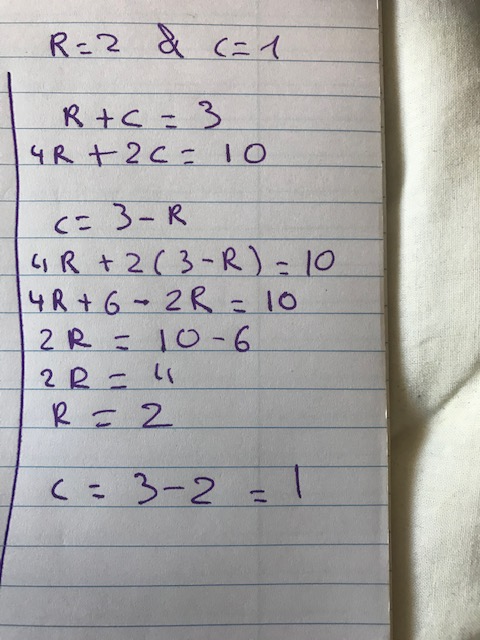 R=2 & C=1
R+C=3
4R+2C=10
C=3-R
4R+2(3-R)=10
4R+6-2R=10
2R=10-6
2R=4
R=2
C=3-2=1